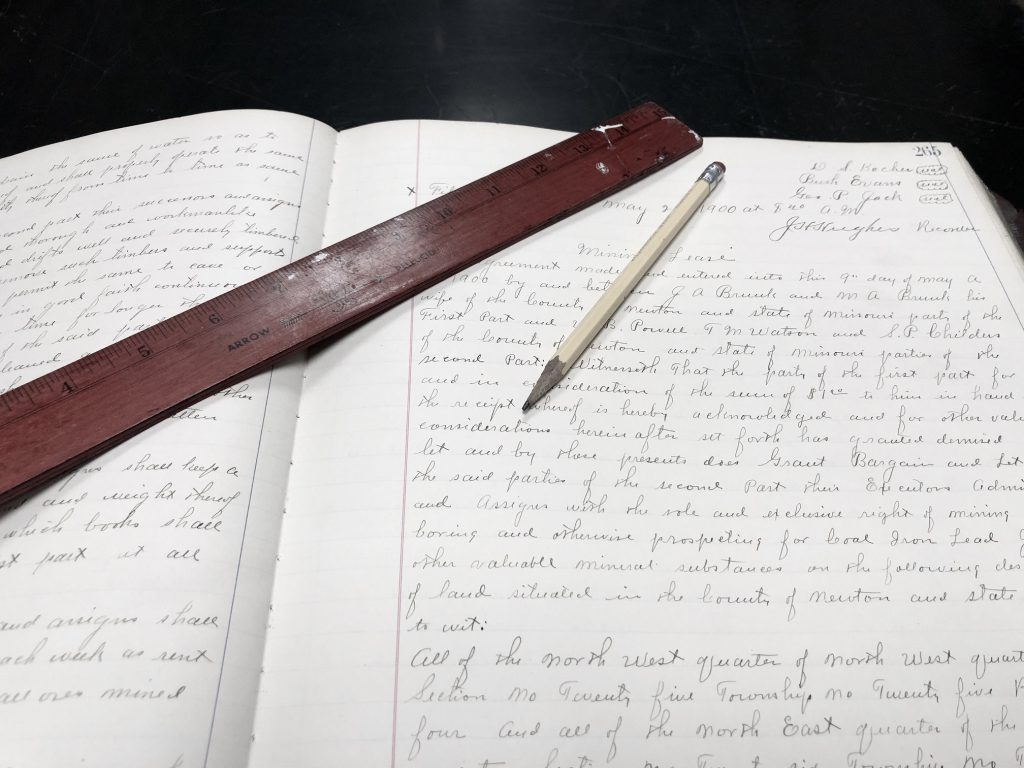 tain the same of water so as to
and shall properly operate the same
from time to time as same
second part their successors and assigns
through an workmanlike
drifts well and securely timbered
remove such timbers and supports
permit the same to cave or
in good faith continuous
time for longer than
of the said part
other
igns shall keep a
and weight thereof
which books shall
st part at all
and assigns shall
each week as rent
all ores mined
4 5 6 10 11 12 13
ARROW
265
x Fil
D. S. Bocher
Bush Evans
Geo. P. Jack
May 1900 at A.M
J H Hughes Recorder
Mining Lease
Agreement made and entered into this 9th day of May A
1900 by and between J A Brunk and M A Brunk his
wife of the County of Newton and state of Missouri party of the
First Part and B. Powell T M Watson and S. P. Childers
of the County of Newton and state of Missouri parties of the
second Part: Witnesseth That the party of the first part for
and in consideration of the sum of $1.00 to him in hand
the receipt whereof is hereby acknowledged and for other valu
considerations herein after set forth has granted demised
let and by these presents does Grant Bargain and Let
the said parties of the second Part their Executors Admi
and Assigns with the sole and exclusive right of mining
boring and otherwise prospecting for Coal Iron Lead
other valuable mineral substances on the following des
of land situated in the County of Newton and state
to wit:
All of the North West quarter of North West quart
Section No Twenty five Township No Twenty five
four and all of the North East quarter of the